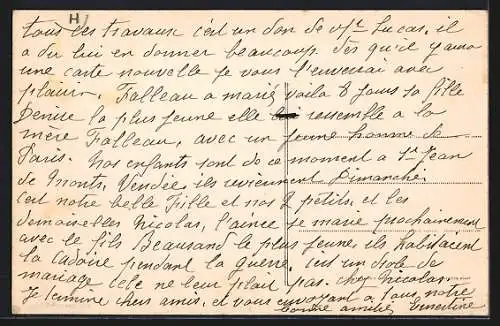 H
tous ces travaux c'est un don de Mr Lucas, il
a du lui en donner beaucoup. Dès qu'il y aura
une carte nouvelle je vous l'enverrai avec
plaisir. Falleau a marié voila 8 jours sa fille
Denise la plus jeune elle ressemble a la
mère Falleau, avec un jeune homme de
Paris. Nos enfants sont de ce moment a St Jean
de Monts, Vendée, ils reviennent Dimanche.
c'est notre belle fille et nos 2 petits, et les
demoiselles Nicolas, l'ainée se marie prochainement
avec le fils Beausand le plus jeune, ils habitaient
la pendant la guerre, c'est un drole de
mariage cela ne leur plait pas chez Nicolas.
Je termine chers amis, et vous envoyant a tous notre
bonne amitié Ernestine